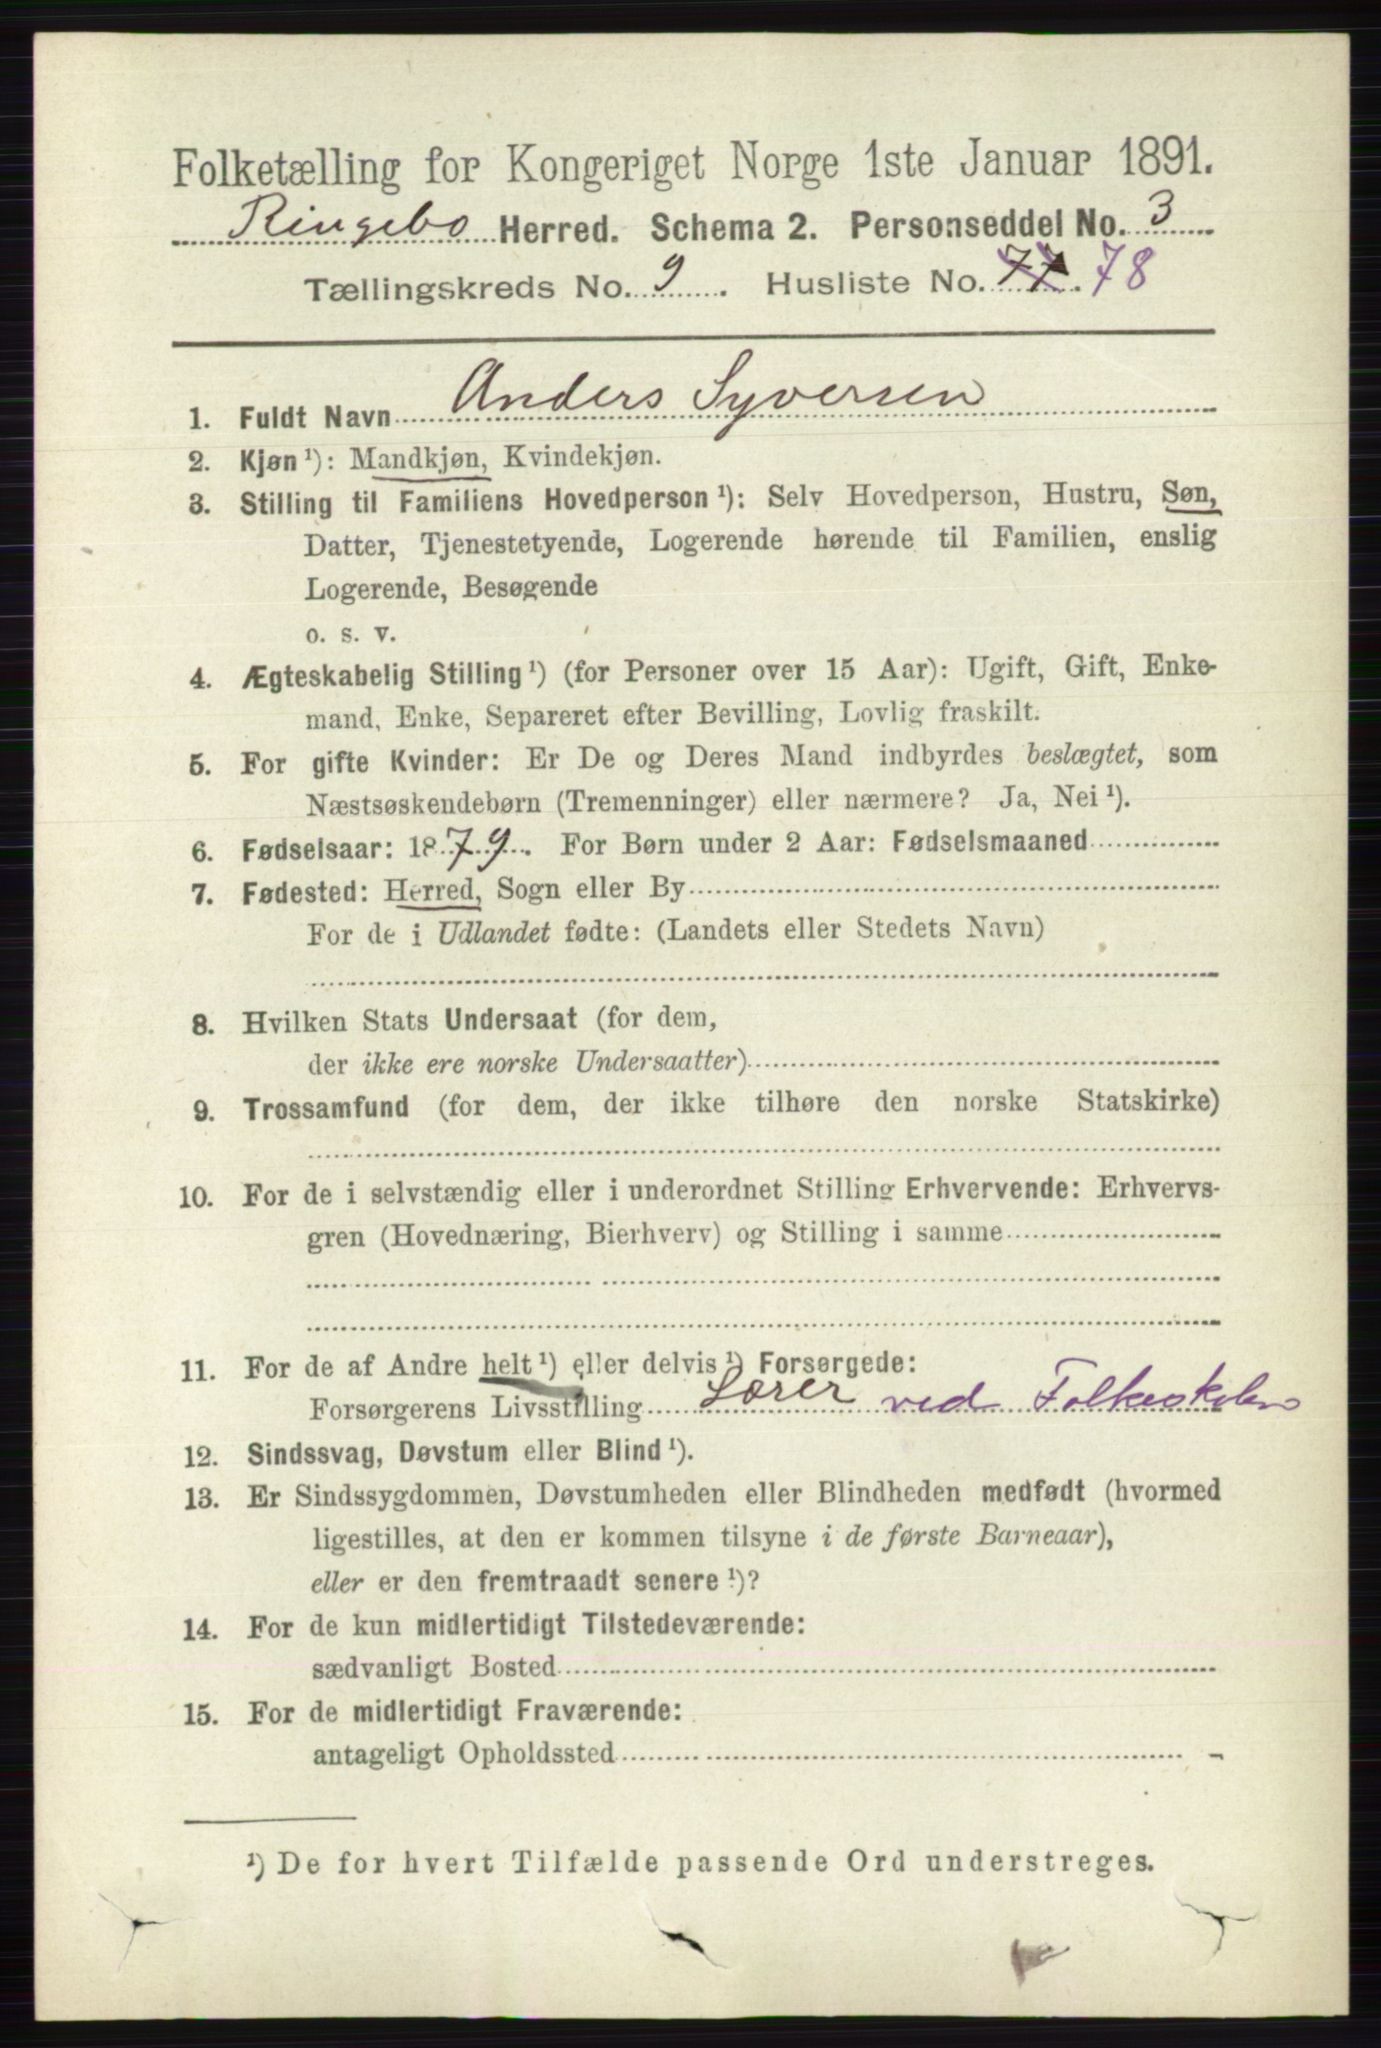 Folketælling for Kongeriget Norge 1ste Januar 1891.
Ringebo Herred. Schema 2. Personseddel No. 3
Tællingskreds No. 9. Husliste No. 77. 78
1. Fuldt Navn Anders Syversen
2. Kjøn ¹): Mandkjøn, Kvindekjøn.
3. Stilling til Familiens Hovedperson ¹): Selv Hovedperson, Hustru, Søn,
Datter, Tjenestetyende, Logerende hørende til Familien, enslig
Logerende, Besøgende
o. s. v.
4. Ægteskabelig Stilling ¹) (for Personer over 15 Aar): Ugift, Gift, Enke-
mand, Enke, Separeret efter Bevilling, Lovlig fraskilt.
5. For gifte Kvinder: Er De og Deres Mand indbyrdes beslægtet, som
Næstsøskendebørn (Tremenninger) eller nærmere? Ja, Nei ¹).
6. Fødselsaar: 1879. For Børn under 2 Aar: Fødselsmaaned
7. Fødested: Herred, Sogn eller By
For de i Udlandet fødte: (Landets eller Stedets Navn)
8. Hvilken Stats Undersaat (for dem,
der ikke ere norske Undersaatter)
9. Trossamfund (for dem, der ikke tilhøre den norske Statskirke)
10. For de i selvstændig eller i underordnet Stilling Erhvervende: Erhvervs-
gren (Hovednæring, Bierhverv) og Stilling i samme
11. For de af Andre helt ¹) eller delvis ¹) Forsørgede:
Forsørgerens Livsstilling Lærer ved Folkeskolen
12. Sindssvag, Døvstum eller Blind ¹).
13. Er Sindssygdommen, Døvstumheden eller Blindheden medfødt (hvormed
ligestilles, at den er kommen tilsyne i de første Barneaar),
eller er den fremtraadt senere ¹)?
14. For de kun midlertidigt Tilstedeværende:
sædvanligt Bosted
15. For de midlertidigt Fraværende:
antageligt Opholdssted
¹) De for hvert Tilfælde passende Ord understreges.